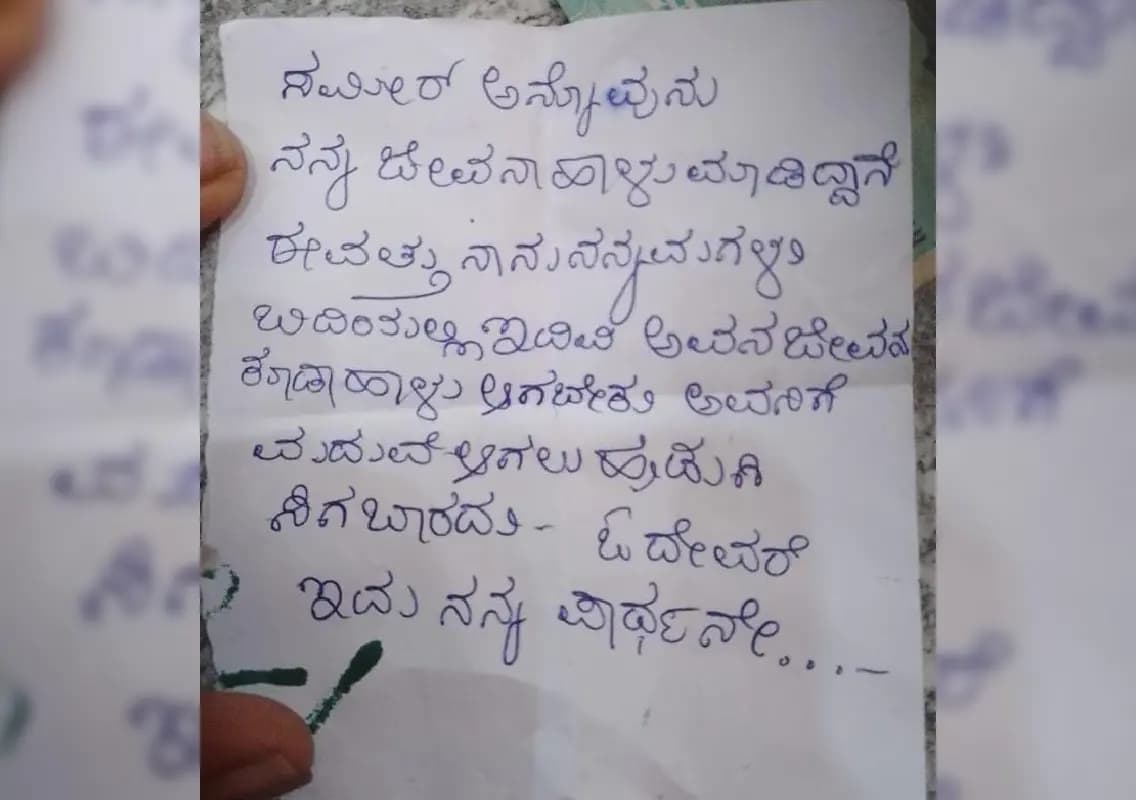 ಸಮೀರ್ ಅನ್ನೋವುನು
ನನ್ನ ಜೀವನಾ ಹಾಳು ಮಾಡಿದ್ದಾನೆ
ಈವತ್ತು ನಾನು ನನ್ನ ಮಗಳು
ಬಿದಿಯಲ್ಲಿ ಇದಿವಿ ಅವನ ಜೀವನ
ಕೂಡಾ ಹಾಳು ಆಗಬೇಕು ಅವನಿಗೆ
ಮದುವೆ ಆಗಲು ಹುಡುಗಿ
ಸಿಗಬಾರದು - ಓ ದೇವರೆ
ಇದು ನನ್ನ ಪಾರ್ಥನೇ...-